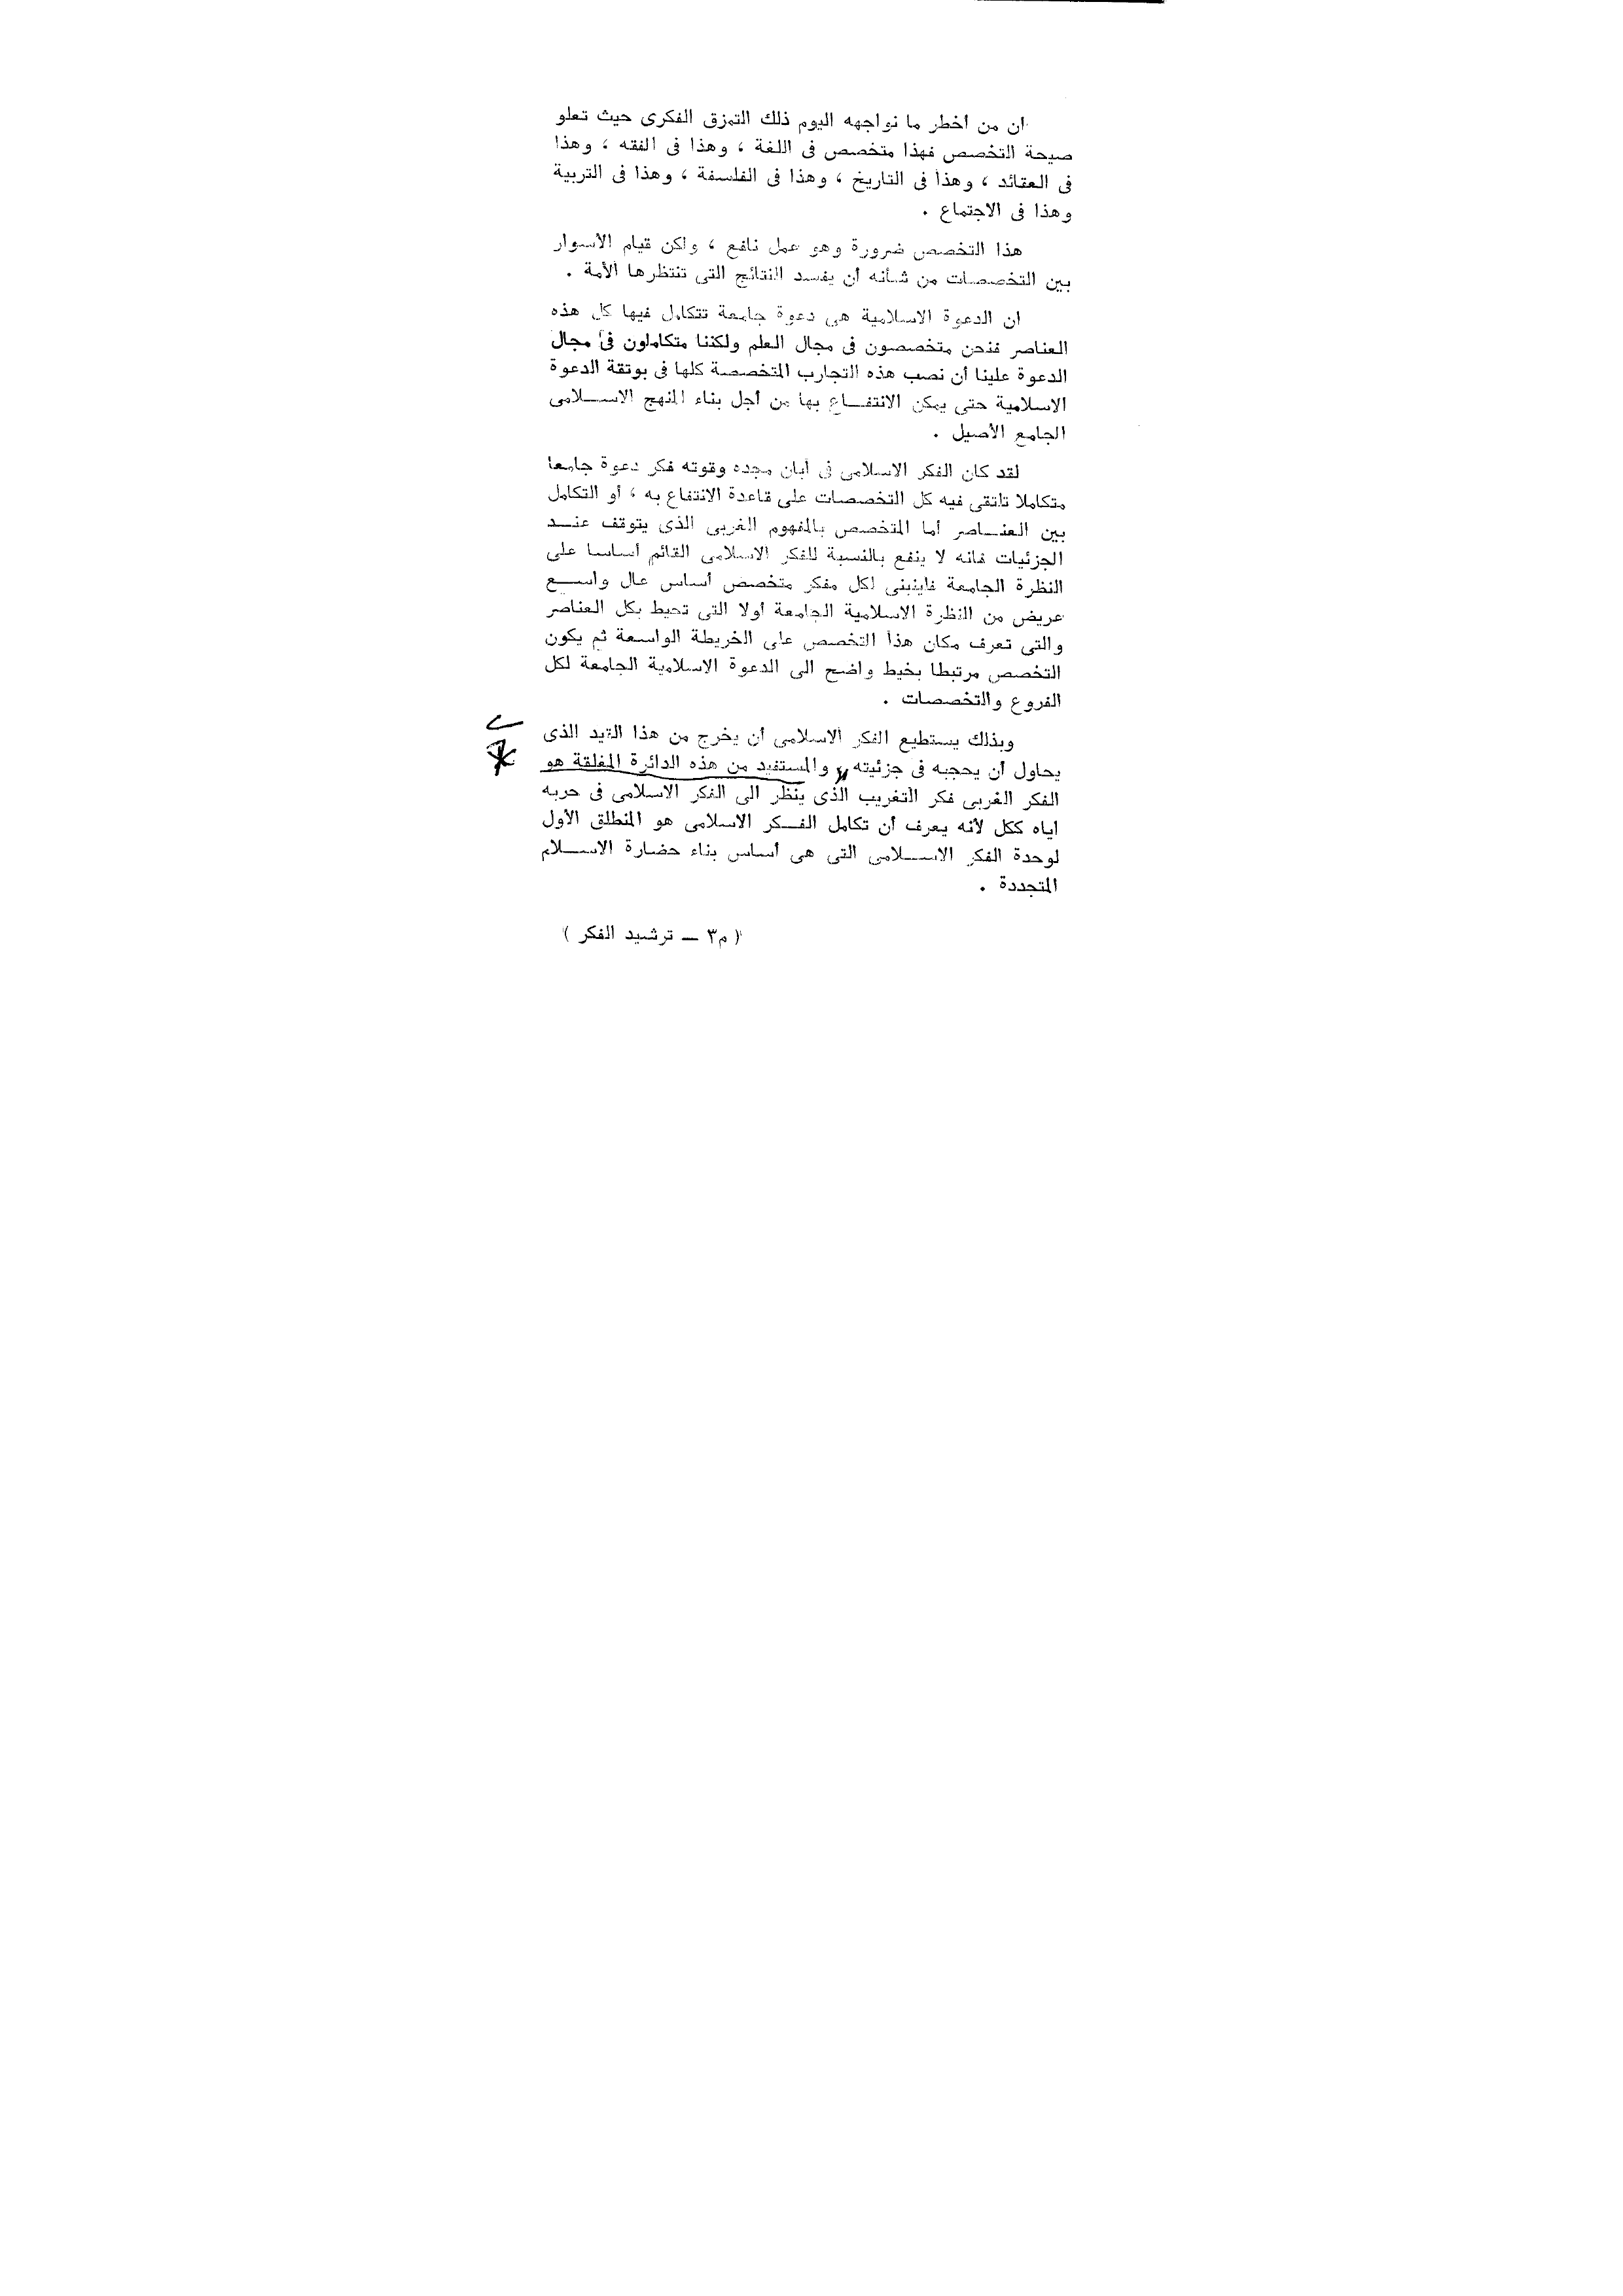 ان من أخطر ما نواجهه اليوم ذلك التمزق الفكرى حيث تعلو
صيحة التخصص فهذا متخصص فى اللغة ، وهذا فى الفقه ، وهذا
فى العقائد ، وهذا فى التاريخ ، وهذا فى الفلسفة ، وهذا فى التربية
وهذا فى الاجتماع .
هذا التخصص ضرورة وهو عمل نافع ، ولكن قيام الأسوار
بين التخصصات من شأنه أن يفسد النتائج التى تنتظرها الأمة .
ان الدعوة الاسلامية هى دعوة جامعة تتكامل فيها كل هذه
العناصر فنحن متخصصون فى مجال العلم ولكننا متكاملون فى مجال
الدعوة علينا أن نصب هذه التجارب المتخصصة كلها فى بوتقة الدعوة
الاسلامية حتى يمكن الانتفـــاع بها من أجل بناء المنهج الاســـلامى
الجامع الأصيل .
لقد كان الفكر الاسلامى فى أبان مجده وقوته فكر دعوة جامعا
متكاملا تلتقى فيه كل التخصصات على قاعدة الانتفاع به ، أو التكامل
بين العنــاصر أما المتخصص بالمفهوم الغربى الذى يتوقف عنــد
الجزئيات فانه لا ينفع بالنسبة للفكر الاسلامى القائم أساسا على
النظرة الجامعة فلينبنى لكل مفكر متخصص أساس عال واســـع
عريض من النظرة الاسلامية الجامعة أولا التى تحيط بكل العناصر
والتى تعرف مكان هذا التخصص على الخريطة الواسعة ثم يكون
التخصص مرتبطا بخيط واضح الى الدعوة الاسلامية الجامعة لكل
الفروع والتخصصات .
وبذلك يستطيع الفكر الاسلامى أن يخرج من هذا القيد الذى
يحاول أن يحجبه فى جزئيته والمستفيد من هذه الدائرة المغلقة هو
الفكر الغربى فكر التغريب الذى ينظر الى الفكر الاسلامى فى حربه
اياه ككل لأنه يعرف أن تكامل الفــكر الاسلامى هو المنطلق الأول
لوحدة الفكر الاســـلامى التى هى أساس بناء حضارة الاســـلام
المتجددة .
( م٣ — ترشيد الفكر )